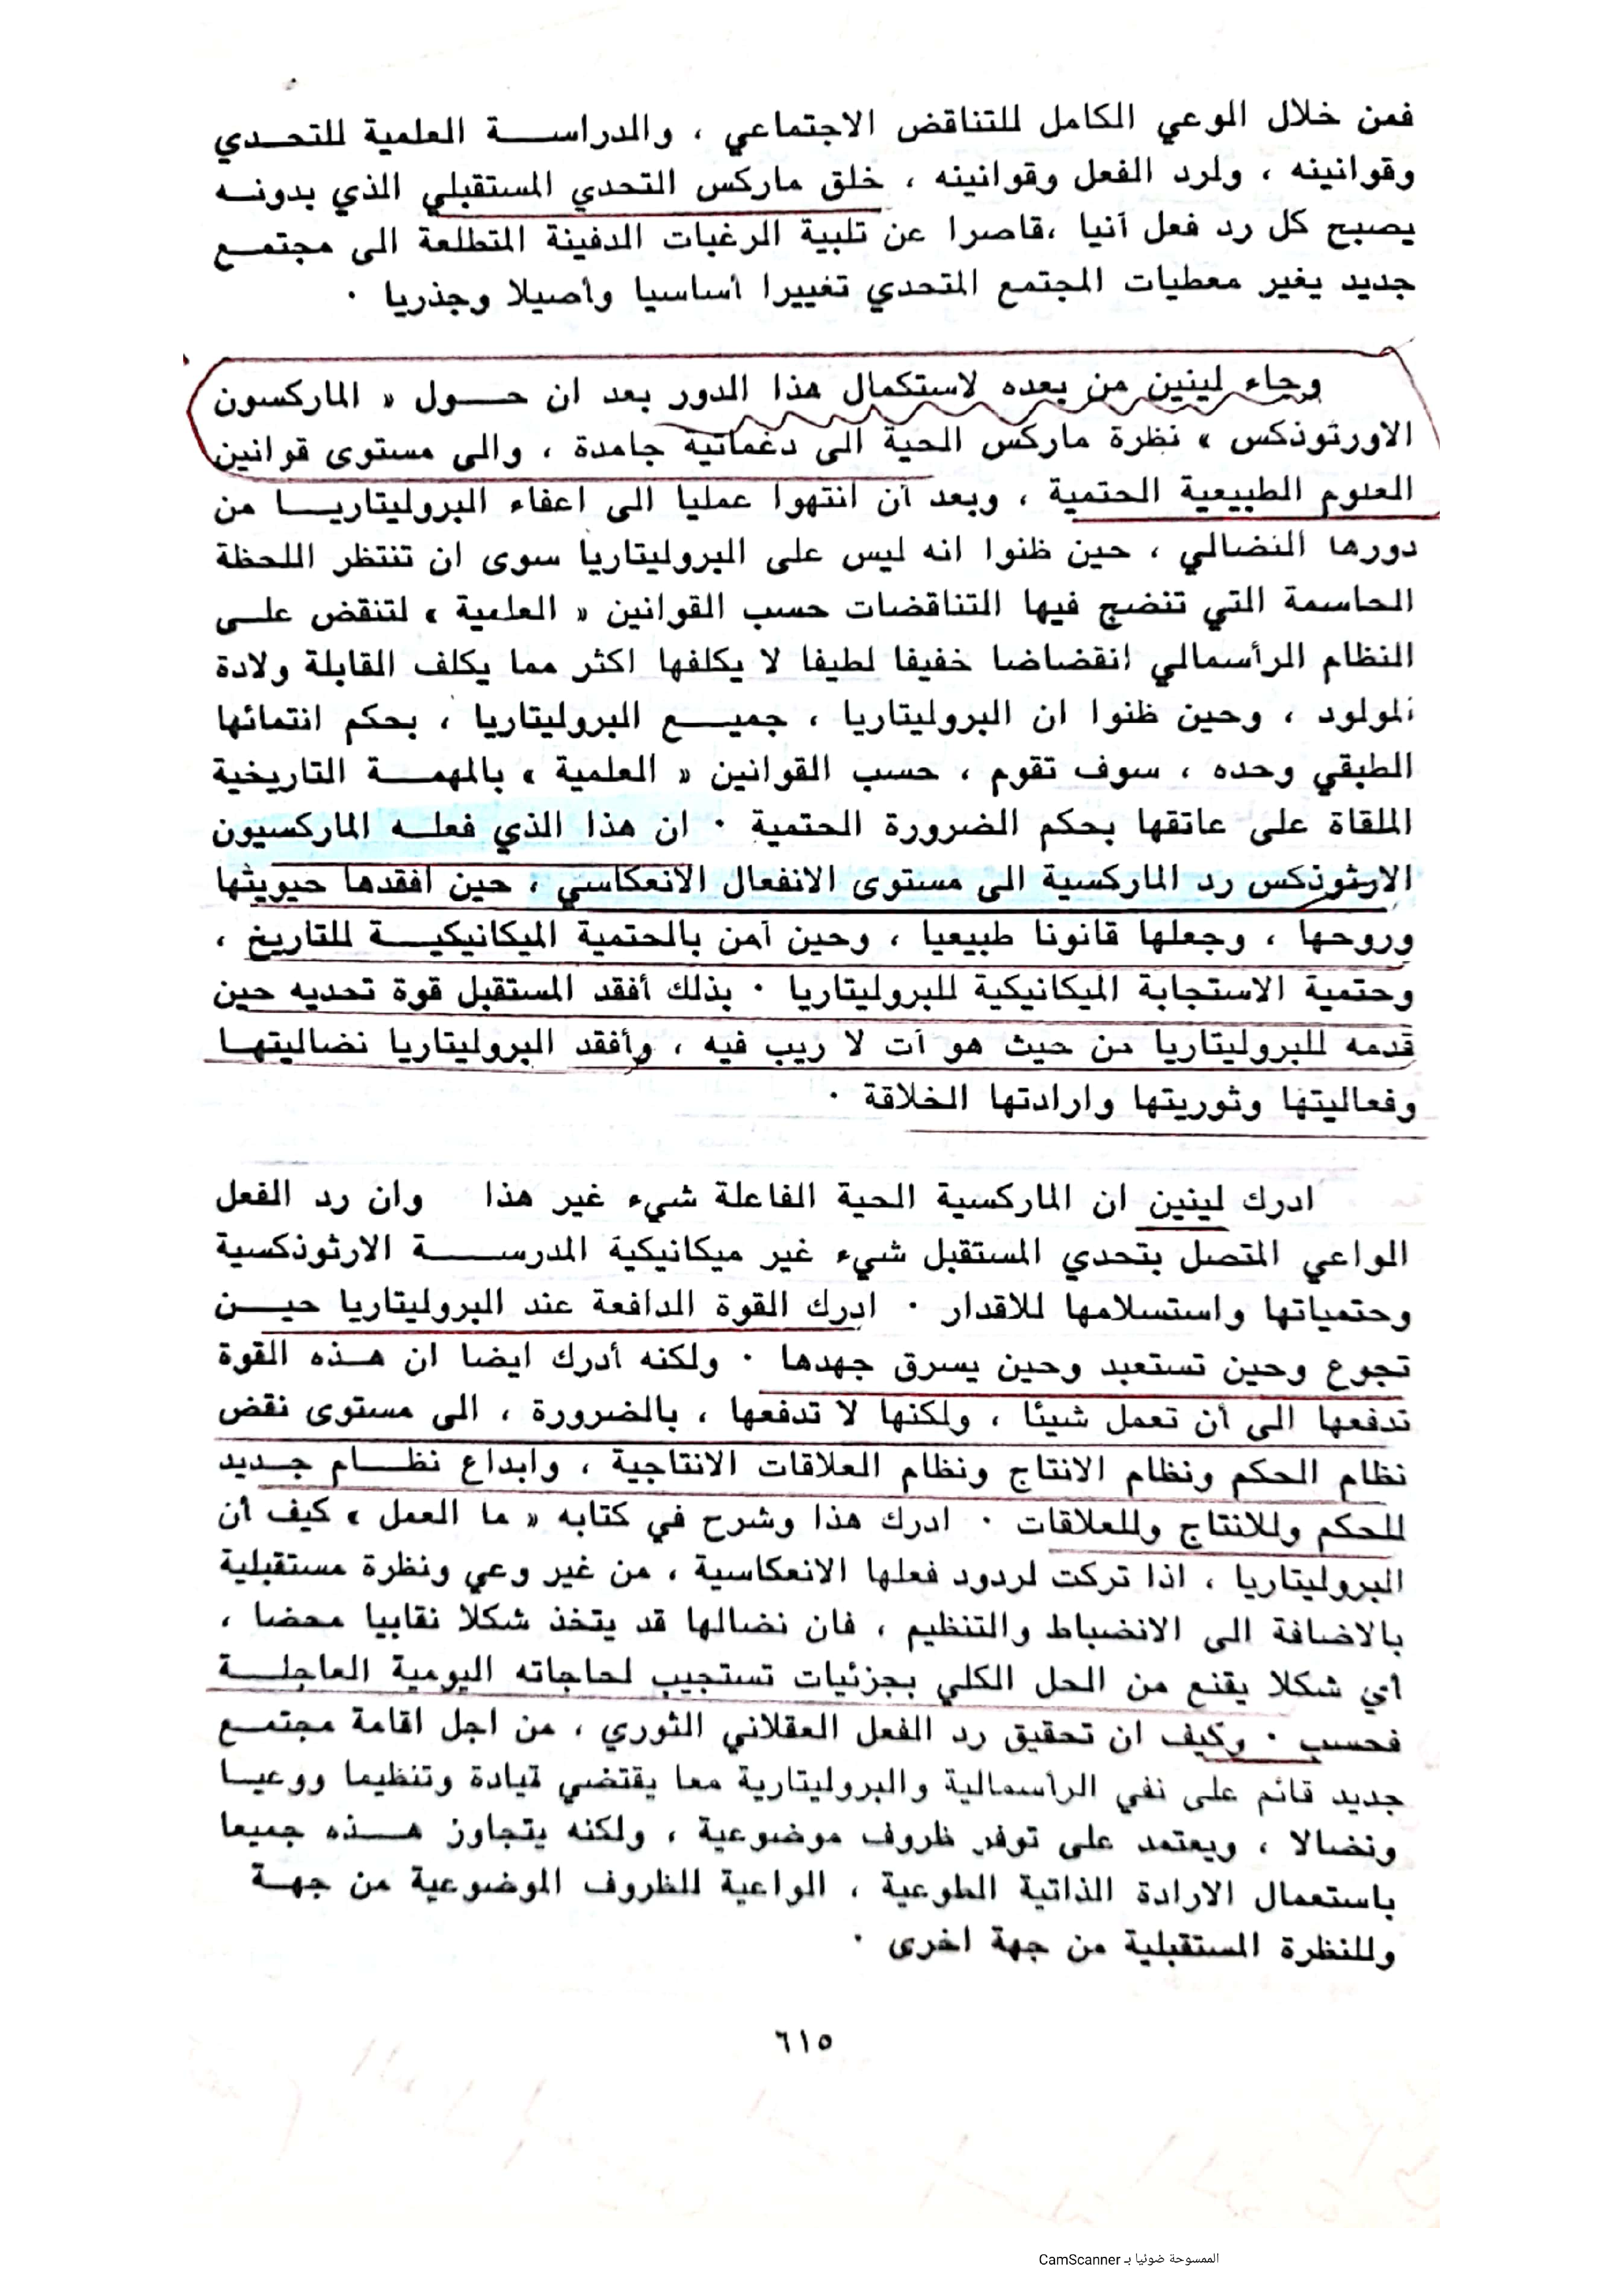 فمن خلال الوعي الكامل للتناقض الاجتماعي ، والدراســـة العلمية للتحــدي
وقوانينه ، ولرد الفعل وقوانينه ، خلق ماركس التحدي المستقبلي الذي بدونــه
يصبح كل رد فعل آنيا ،قاصرا عن تلبية الرغبات الدفينة المتطلعة الى مجتمــع
جديد يغير معطيات المجتمع المتحدي تغييرا أساسيا وأصيلا وجذريا ·
وجاء لينين من بعده لاستكمال هذا الدور بعد ان حــول « الماركسون
الاورثوذكس » نظرة ماركس الحية الى دغماتية جامدة ، والى مستوى قوانين
العلوم الطبيعية الحتمية ، وبعد أن انتهوا عمليا الى اعفاء البروليتاريــا من
دورها النضالي ، حين ظنوا انه ليس على البروليتاريا سوى ان تنتظر اللحظة
الحاسمة التي تنضج فيها التناقضات حسب القوانين « العلمية » لتنقض علــى
النظام الرأسمالي انقضاضا خفيفا لطيفا لا يكلفها اكثر مما يكلف القابلة ولادة
المولود ، وحين ظنوا ان البروليتاريا ، جميـــع البروليتاريا ، بحكم انتمائها
الطبقي وحده ، سوف تقوم ، حسب القوانين « العلمية » بالمهمــة التاريخية
الملقاة على عاتقها بحكم الضرورة الحتمية · ان هذا الذي فعلــه الماركسيون
الارثوذكس رد الماركسية الى مستوى الانفعال الانعكاسي ، حين أفقدها حيويتها
وروحها ، وجعلها قانونا طبيعيا ، وحين آمن بالحتمية الميكانيكيــة للتاريخ ،
وحتمية الاستجابة الميكانيكية للبروليتاريا · بذلك أفقد المستقبل قوة تحديه حين
قدمه للبروليتاريا من حيث هو آت لا ريب فيه ، وأفقد البروليتاريا نضاليتهــا
وفعاليتها وثوريتها وارادتها الخلاقة ·
ادرك لينين ان الماركسية الحية الفاعلة شيء غير هذا وان رد الفعل
الواعي المتصل بتحدي المستقبل شيء غير ميكانيكية المدرســـة الارثوذكسية
وحتمياتها واستسلامها للاقدار · ادرك القوة الدافعة عند البروليتاريا حيــن
تجوع وحين تستعبد وحين يسرق جهدها · ولكنه أدرك ايضا ان هــذه القوة
تدفعها الى أن تعمل شيئا ، ولكنها لا تدفعها ، بالضرورة ، الى مستوى نقض
نظام الحكم ونظام الانتاج ونظام العلاقات الانتاجية ، وابداع نظــام جــديد
للحكم وللانتاج وللعلاقات · ادرك هذا وشرح في كتابه « ما العمل » كيف أن
البروليتاريا ، اذا تركت لردود فعلها الانعكاسية ، من غير وعي ونظرة مستقبلية
بالاضافة الى الانضباط والتنظيم ، فان نضالها قد يتخذ شكلا نقابيا محضا ،
أي شكلا يقنع من الحل الكلي بجزئيات تستجيب لحاجاته اليومية العاجلــة
فحسب · وكيف ان تحقيق رد الفعل العقلاني الثوري ، من اجل اقامة مجتمــع
جديد قائم على نفي الرأسمالية والبروليتارية معا يقتضي قيادة وتنظيما ووعيــا
ونضالا ، ويعتمد على توفر ظروف موضوعية ، ولكنه يتجاوز هــذه جميعا
باستعمال الارادة الذاتية الطوعية ، الواعية للظروف الموضوعية من جهــة
وللنظرة المستقبلية من جهة اخرى ·
٦١٥
الممسوحة ضوئيا بـ CamScanner